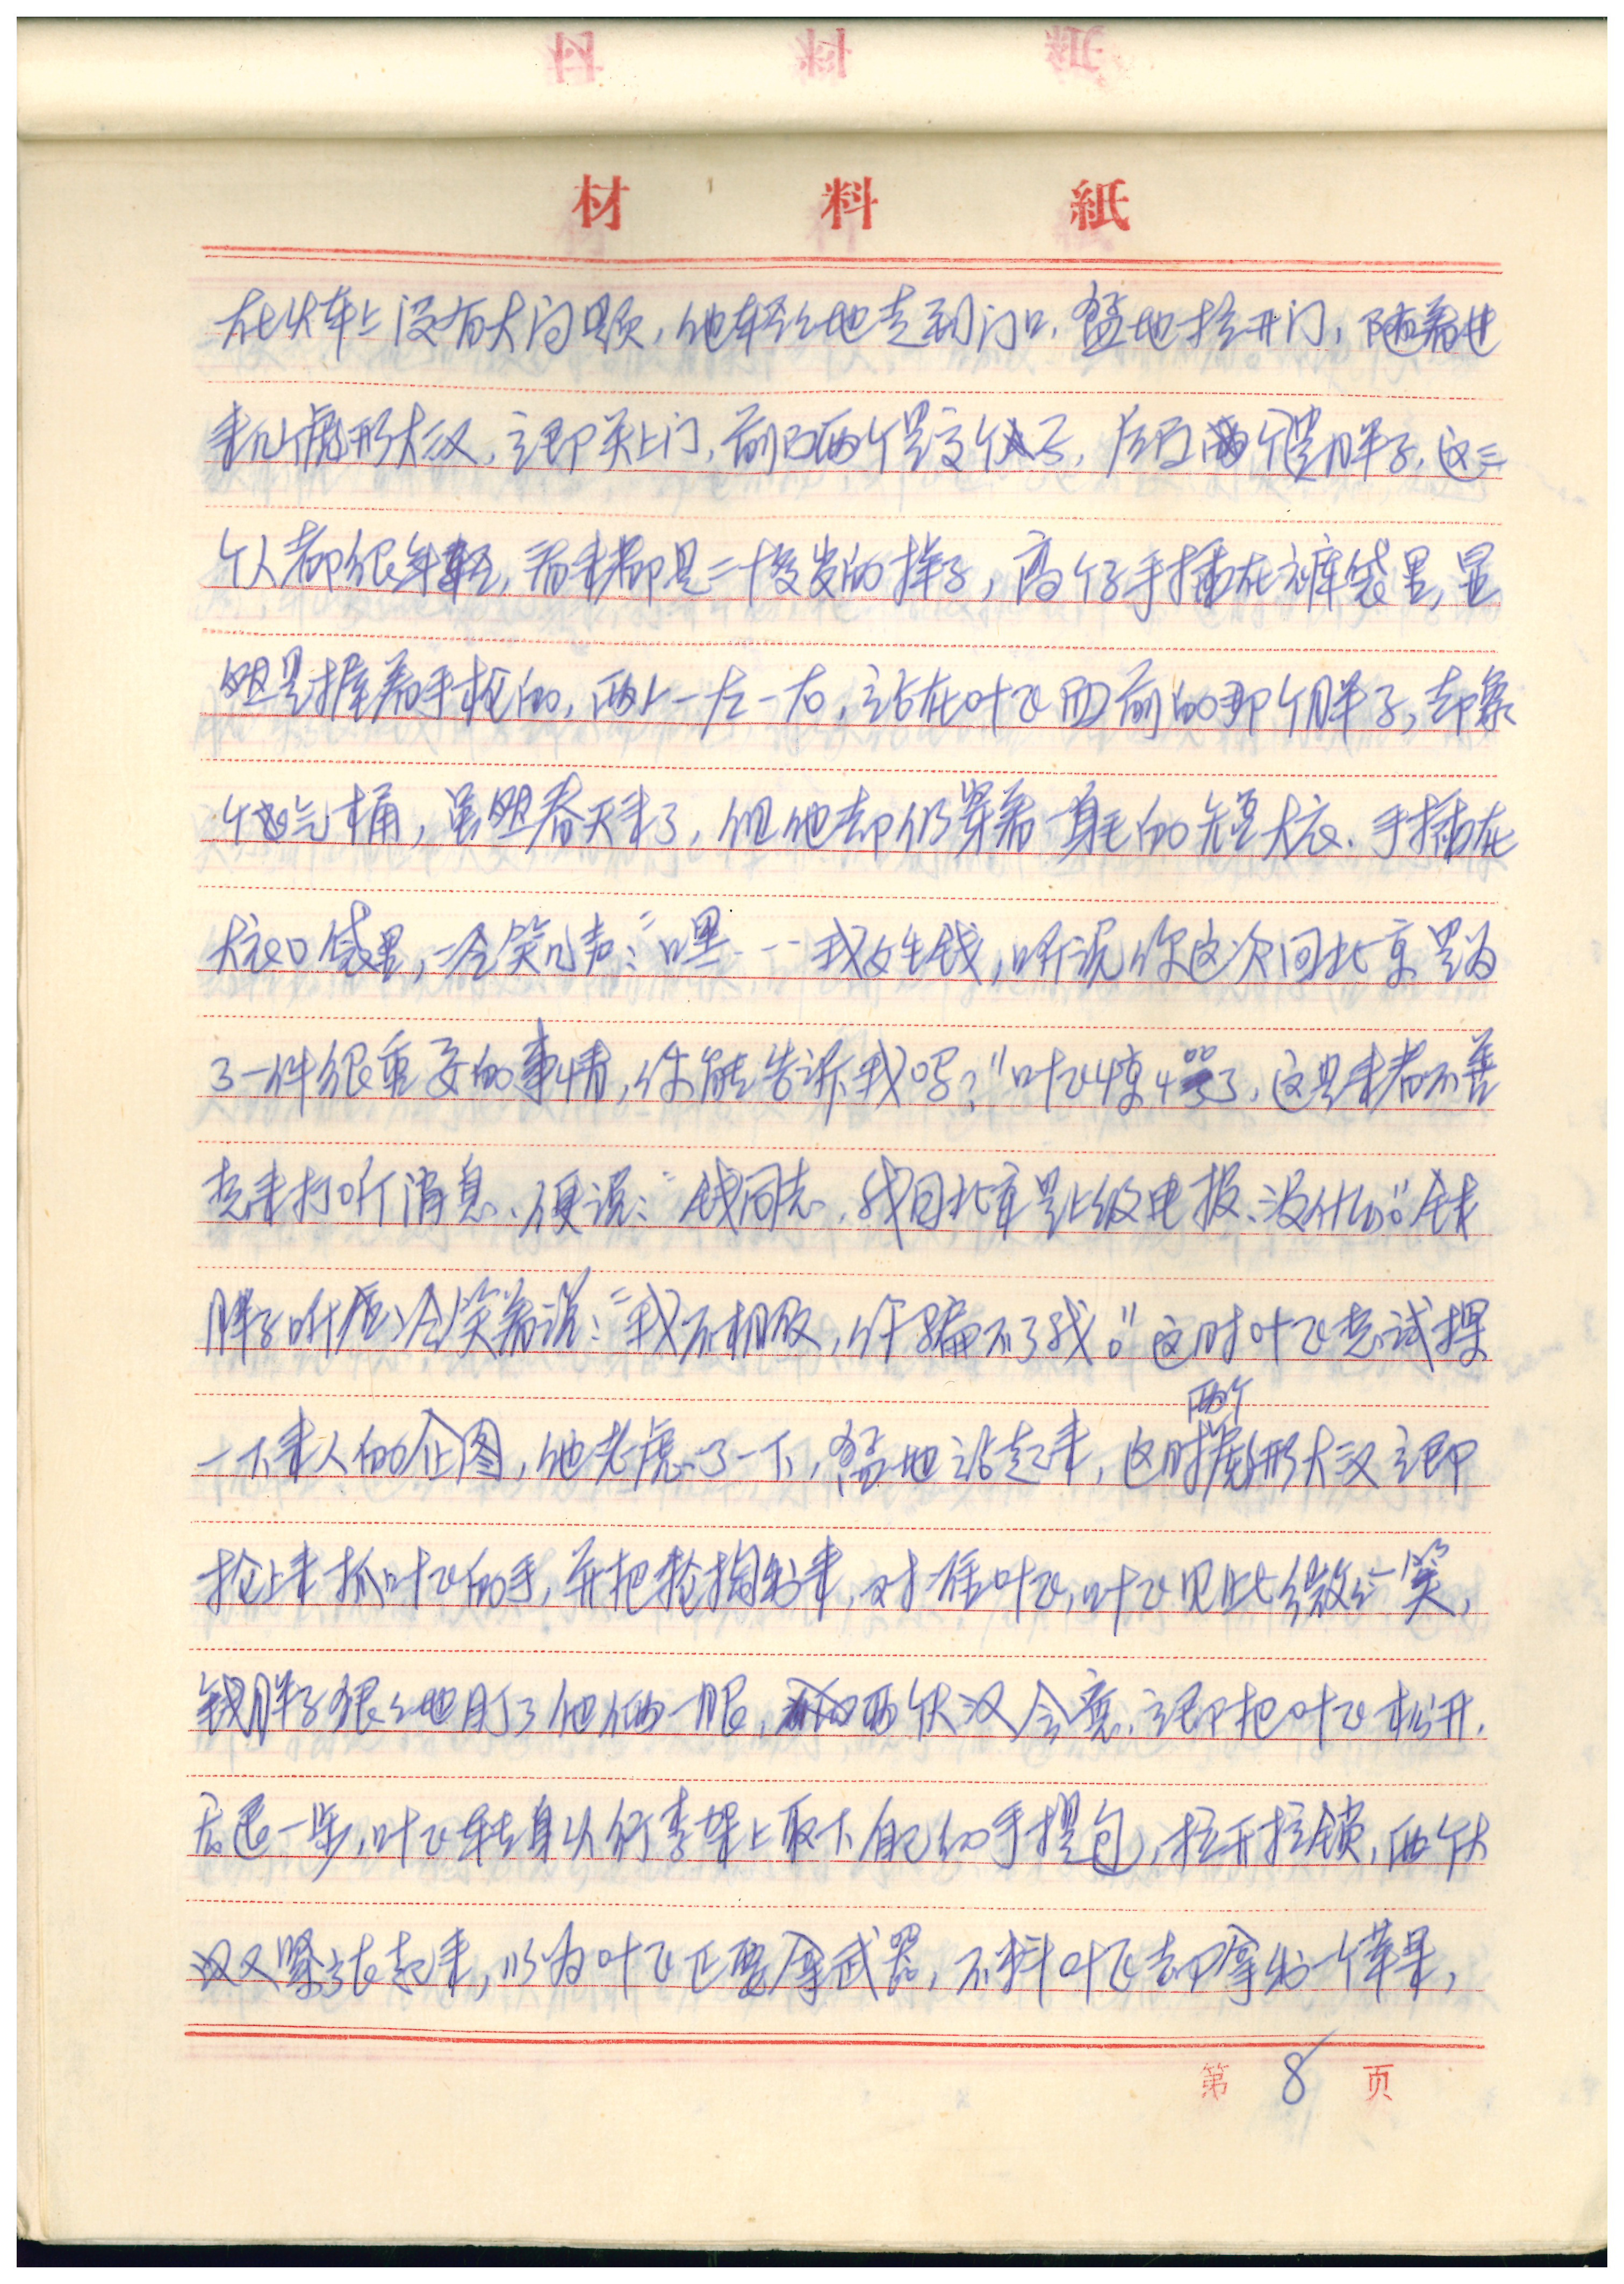 材料紙
在火车上没有大问题,他轻轻地走到门口,猛地拉开门,随着进
来几个彪形大汉,立即关上门,前面两个是高个子,后面个是胖子,这三
个人都很年轻,看来都是二十多岁的样子,高个子手插在裤袋里,显
然是握着手枪的,两人一左一右,站在叶飞面前的那个胖子,却象
个汽油桶,虽然春天来了,但他却仍穿着一身毛的短大衣.手插在
大衣口袋里,冷笑几声:“嘿……我姓钱,听说你这次回北京是为
了一件很重要的事情,你能告诉我吗?”叶飞心里了,这是来者不善
是来打听消息.便说:“钱同志,我回北京是上级电报、没什么。”钱
胖子听后冷笑着说:“我不相信,你骗不了我。”这时叶飞想试探
一下来人的企图,他考虑了一下,猛地站起来,这时两个彪形大汉立即
抢上来抓叶飞的手,并把枪掏出来,对准叶飞,叶飞见此微微一笑,
钱胖子狠狠地盯了他俩一眼,两个大汉会意.立即把叶飞松开.
后退一步,叶飞转身从行李架上取下自己的手提包,拉开拉锁,两个大
汉又紧张起来,以为叶飞正要拿武器,不料叶飞却拿出一个苹果,
第8页